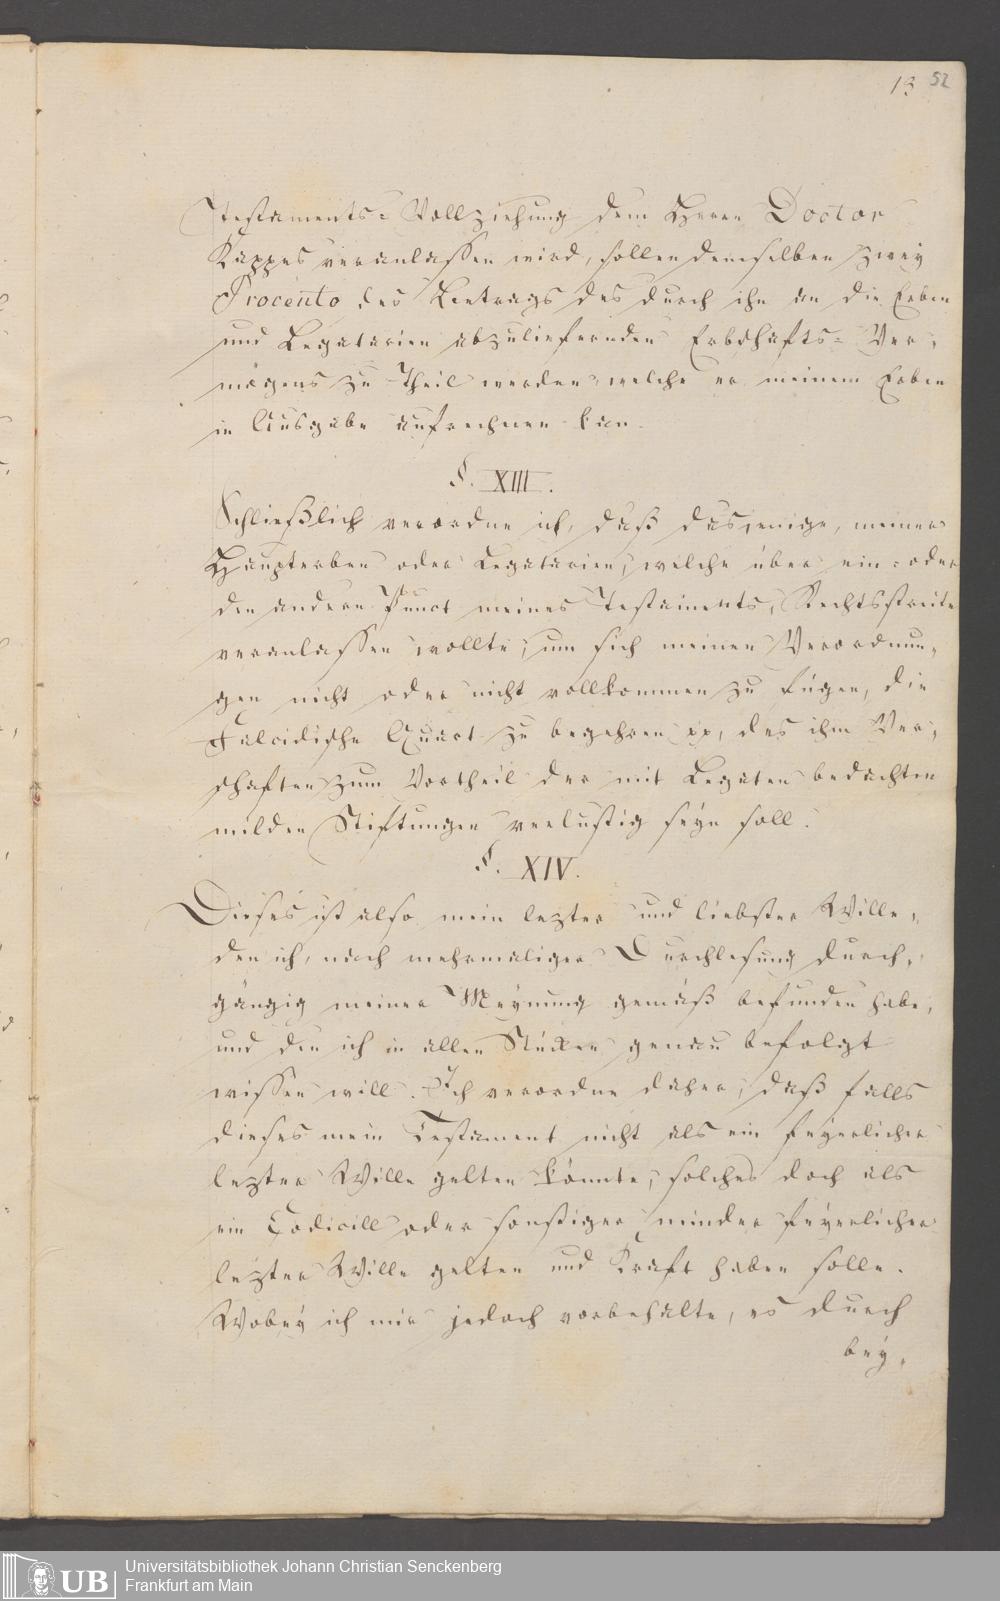 13 52
Testaments-Vollziehung dem Herrn Doctor
Kappes veranlassen wird, sollen demselben zwey
Procento des Betrags des durch ihn an die Erben
und Legatarien abzuliefernden Erbschafts-Ver,
mögens zu Theil werden, welche er meinem Erben
in Ausgabe aufrechnen kan.
§. XIII.
Schließlich verordne ich, daß dasjenige, meiner
Haupterben oder Legatarien, welche über ein- oder
den andern Punct meines Testaments, Rechtsstreite
veranlassen wollte, um sich meinen Verordnun,
gen nicht oder nicht vollkommen zu fügen, die
Falcidische Quart zu begehren pp, des ihm Ver,
schaften zum Vortheil der mit Legaten bedachten
milden Stiftungen verlustig seyn soll.
§. XIV.
Dieses ist also mein lezter und liebster Wille,
den ich, nach mehrmaliger Durchlesung durch,
gängig meiner Meynung gemäß befunden habe,
und den ich in allen Stücken genau befolgt
wissen will. Ich verordne daher, daß falls
dieses mein Testament nicht als ein feyerlicher
lezter Wille gelten könnte, solches doch als
ein Codicill oder sonstiger minder feyerlicher
lezter Wille gelten und Kraft haben solle.
Wobey ich mir jedoch vorbehalte, es durch
bey,
UB
Universitätsbibliothek Johann Christian Senckenberg
Frankfurt am Main